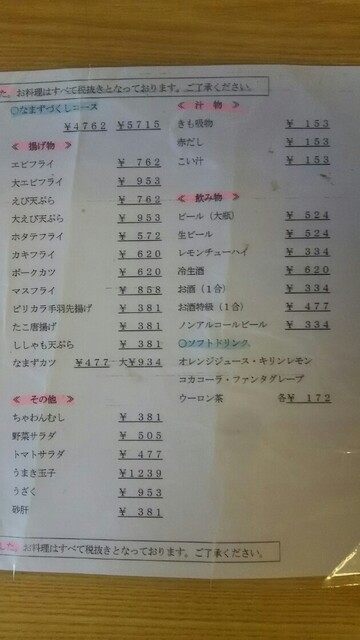 した。お料理はすべて税抜きとなっております。ご了承ください。
○なまずづくしコース
¥4762 ¥5715
＜ 揚げ物 ＞
エビフライ ¥ 762
大エビフライ ¥ 953
えび天ぷら ¥ 762
大えび天ぷら ¥ 953
ホタテフライ ¥ 572
カキフライ ¥ 620
ポークカツ ¥ 620
マスフライ ¥ 858
ピリカラ手羽先揚げ ¥ 381
たこ唐揚げ ¥ 381
ししゃも天ぷら ¥ 381
なまずカツ ¥477 大¥934
＜ その他 ＞
ちゃわんむし ¥ 381
野菜サラダ ¥ 505
トマトサラダ ¥ 477
うまき玉子 ¥1239
うざく ¥ 953
砂肝 ¥ 381
＜ 汁 物 ＞
きも吸物 ¥ 153
赤だし ¥ 153
こい汁 ¥ 153
＜ 飲み物 ＞
ビール（大瓶） ¥ 524
生ビール ¥ 524
レモンチューハイ ¥ 334
冷生酒 ¥ 620
お酒（1合） ¥ 334
お酒特級（1合） ¥ 477
ノンアルコールビール ¥ 334
○ソフトドリンク
オレンジジュース・キリンレモン
コカコーラ・ファンタグレープ
ウーロン茶 各¥ 172
した。お料理はすべて税抜きとなっております。ご了承ください。